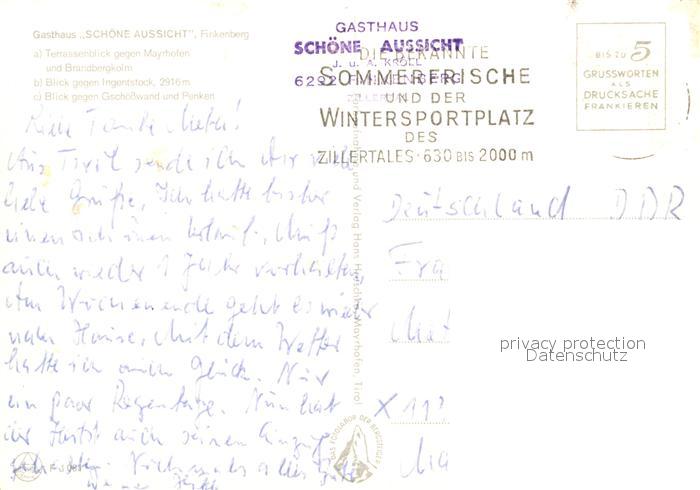 Gasthaus „SCHÖNE AUSSICHT", Finkenberg
a) Terrassenblick gegen Mayrhofen
und Brandbergkolm
b) Blick gegen Ingentstock, 2916 m
c) Blick gegen Gschößwand und Penken
GASTHAUS
SCHÖNE AUSSICHT
J. u. A. KRÖLL
6292 FINKENBERG
DIE BEKANNTE
SOMMERFRISCHE
UND DER
WINTERSPORTPLATZ
DES
ZILLERTALES · 630 BIS 2000 m
BIS ZU 5
GRUSSWORTEN
ALS
DRUCKSACHE
FRANKIEREN
Liebe Tante
Aus Tirol sende ich Dir viele
liebe Grüße. Ich hatte bisher
einen schönen Urlaub. Muß
auch wieder 1 Jahr vorhalten.
Am Wochenende geht es wieder
nach Hause. Mit dem Wetter
hatte ich auch Glück. Nur
ein paar Regentage. Nun hat
der Herbst auch seinen Einzug
gehalten. Nochmals alles Gute
Deutschland DDR
Fra
X 11
und Verlag Hans Mayrhofen, Tirol
DAS FOTOLABOR DER BERGSTEIGER
privacy protection
Datenschutz